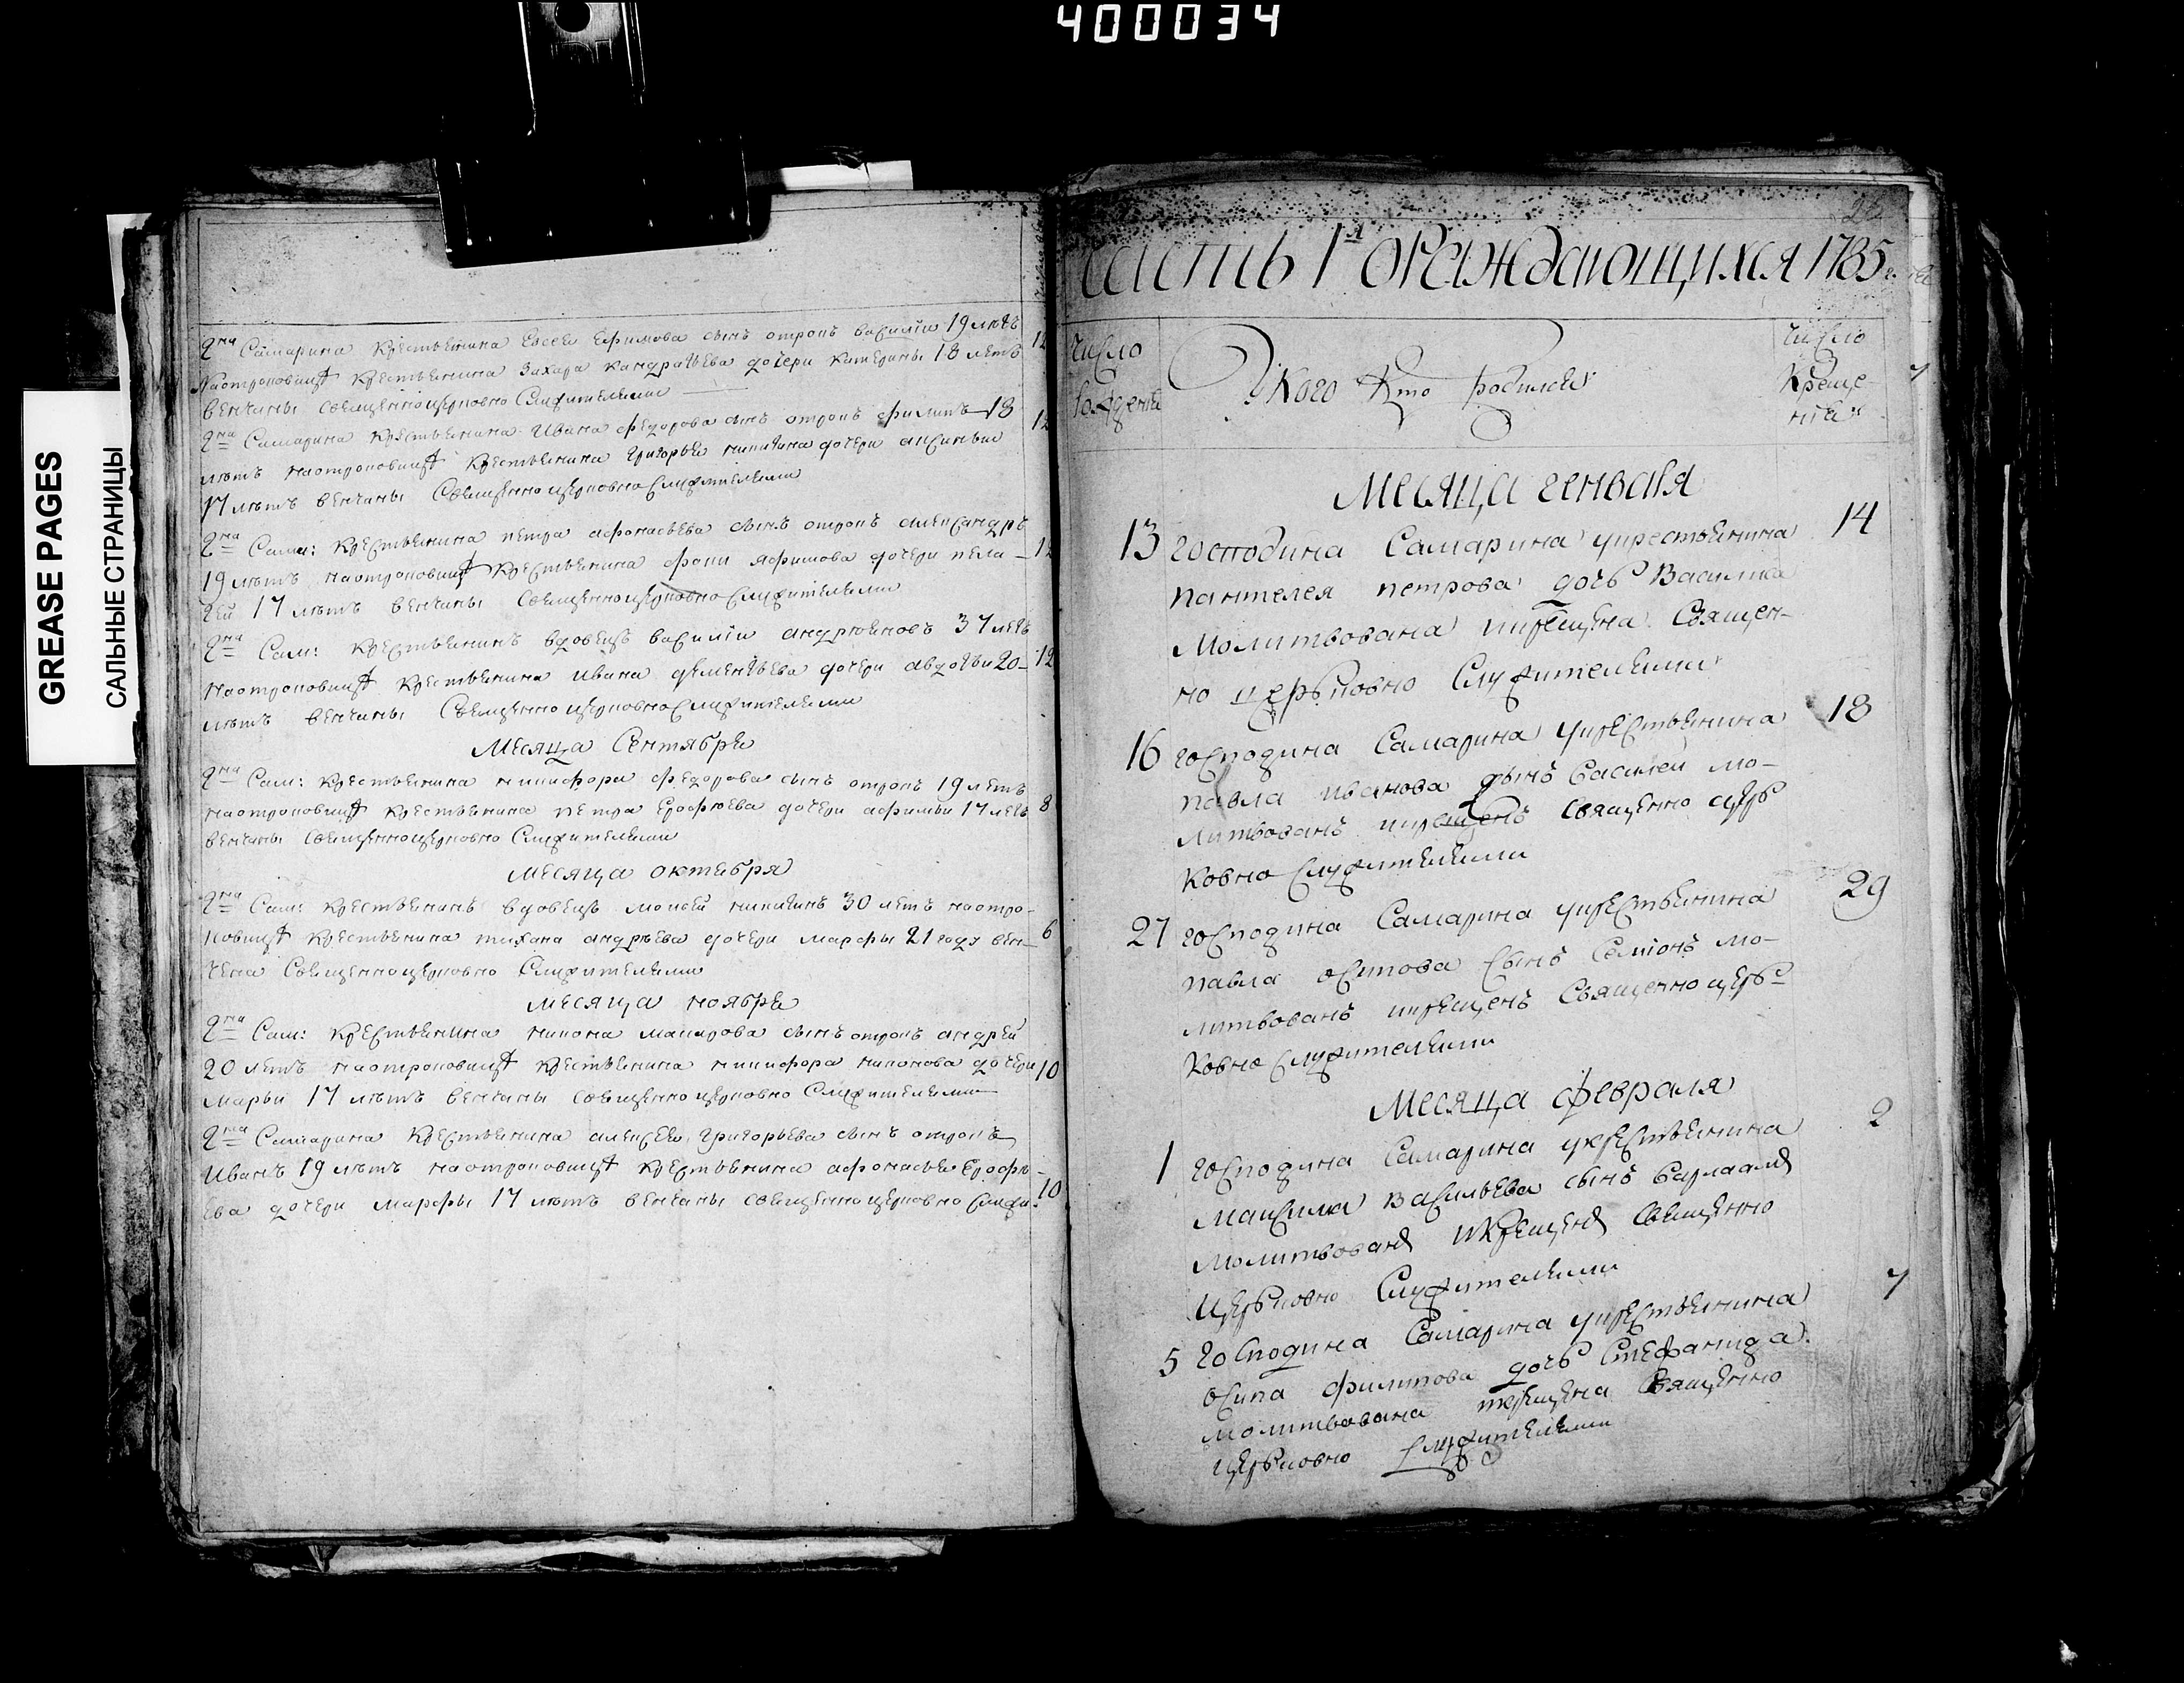 400034
GREASE PAGES
САЛЬНЫЕ СТРАНИЦЫ
гна Самарина крестьянина Евсея Ефимова сынъ отрокъ василии 19 летъ 12
наотроковицѣ крестьянина Захара кандратьева дочери катерины 18 летъ
венчаны священноцерковно служителями
гна Самарина крестьянина Ивана федорова сынъ отрокъ филипъ 18 12
летъ наотроковицѣ крестьянина Григорья никитина дочери аксиньи
17 летъ венчаны священноцерковно служителями
гна Сама: крестьянина петра афонасьева сынъ отрокъ александръ
19 летъ наотроковицѣ крестьянина фоки яфимова дочери пела- 12
геи 17 летъ венчаны священноцерковно служителями
гна Сам: крестьянинъ вдовецъ василии андрюяновъ 37 летъ
наотроковицѣ крестьянина ивана дементьева дочери авдотьи 20- 12
летъ венчаны священноцерковно служителями
Месяца Сентября
гна Сам: крестьянина никифора федорова сынъ отрокъ 19 летъ
наотроковицѣ крестьянина петра Ерофеева дочери афимьи 17 летъ 8
венчаны священноцерковно служителями
Месяца октября
гна Сам: крестьянинъ вдовецъ мокей никитинъ 30 летъ наотро-
ковицѣ крестьянина тихана андреева дочери марфы 21 году вен- 6
чена священноцерковно служителями
месяца ноября
гна Сам: крестьянина никона макарова сынъ отрокъ андрей
20 летъ наотроковицѣ крестьянина никифора никонова дочери 10
марьи 17 летъ венчаны священноцерковно служителями
гна Самарина крестьянина алексея григорьева сынъ отрокъ
Иванъ 19 летъ наотроковицѣ крестьянина афонасья Ерофе-
ева дочери марфы 17 летъ венчаны священноцерковно служи. 10
часть 1я ораждающихся 1785г.
число рождения
У Кого Кто родился
число Креще-ния
Месяца генваря
13 господина Самарина укрестьянина 14
пантелея петрова дочь Василиса
молитвована икрещена Священ-
но церьковно Служителями
16 господина Самарина укрестьянина 18
павла иванова сынъ василей мо-
литвованъ икрещенъ священно церь
ковно служителями
27 господина Самарина укрестьянина 29
павла осипова сынъ Семионъ мо-
литвованъ икрещенъ Священно церь-
ковно служителями
Месяца февраля
1 господина Самарина укрестьянина 2
максима васильева сынъ варлаамъ
молитвованъ икрещенъ священно
церьковно Служителями
5 господина Самарина укрестьянина 7
осипа филипова дочь Стефанида
молитвована икрещена Священно
церьковно служителями